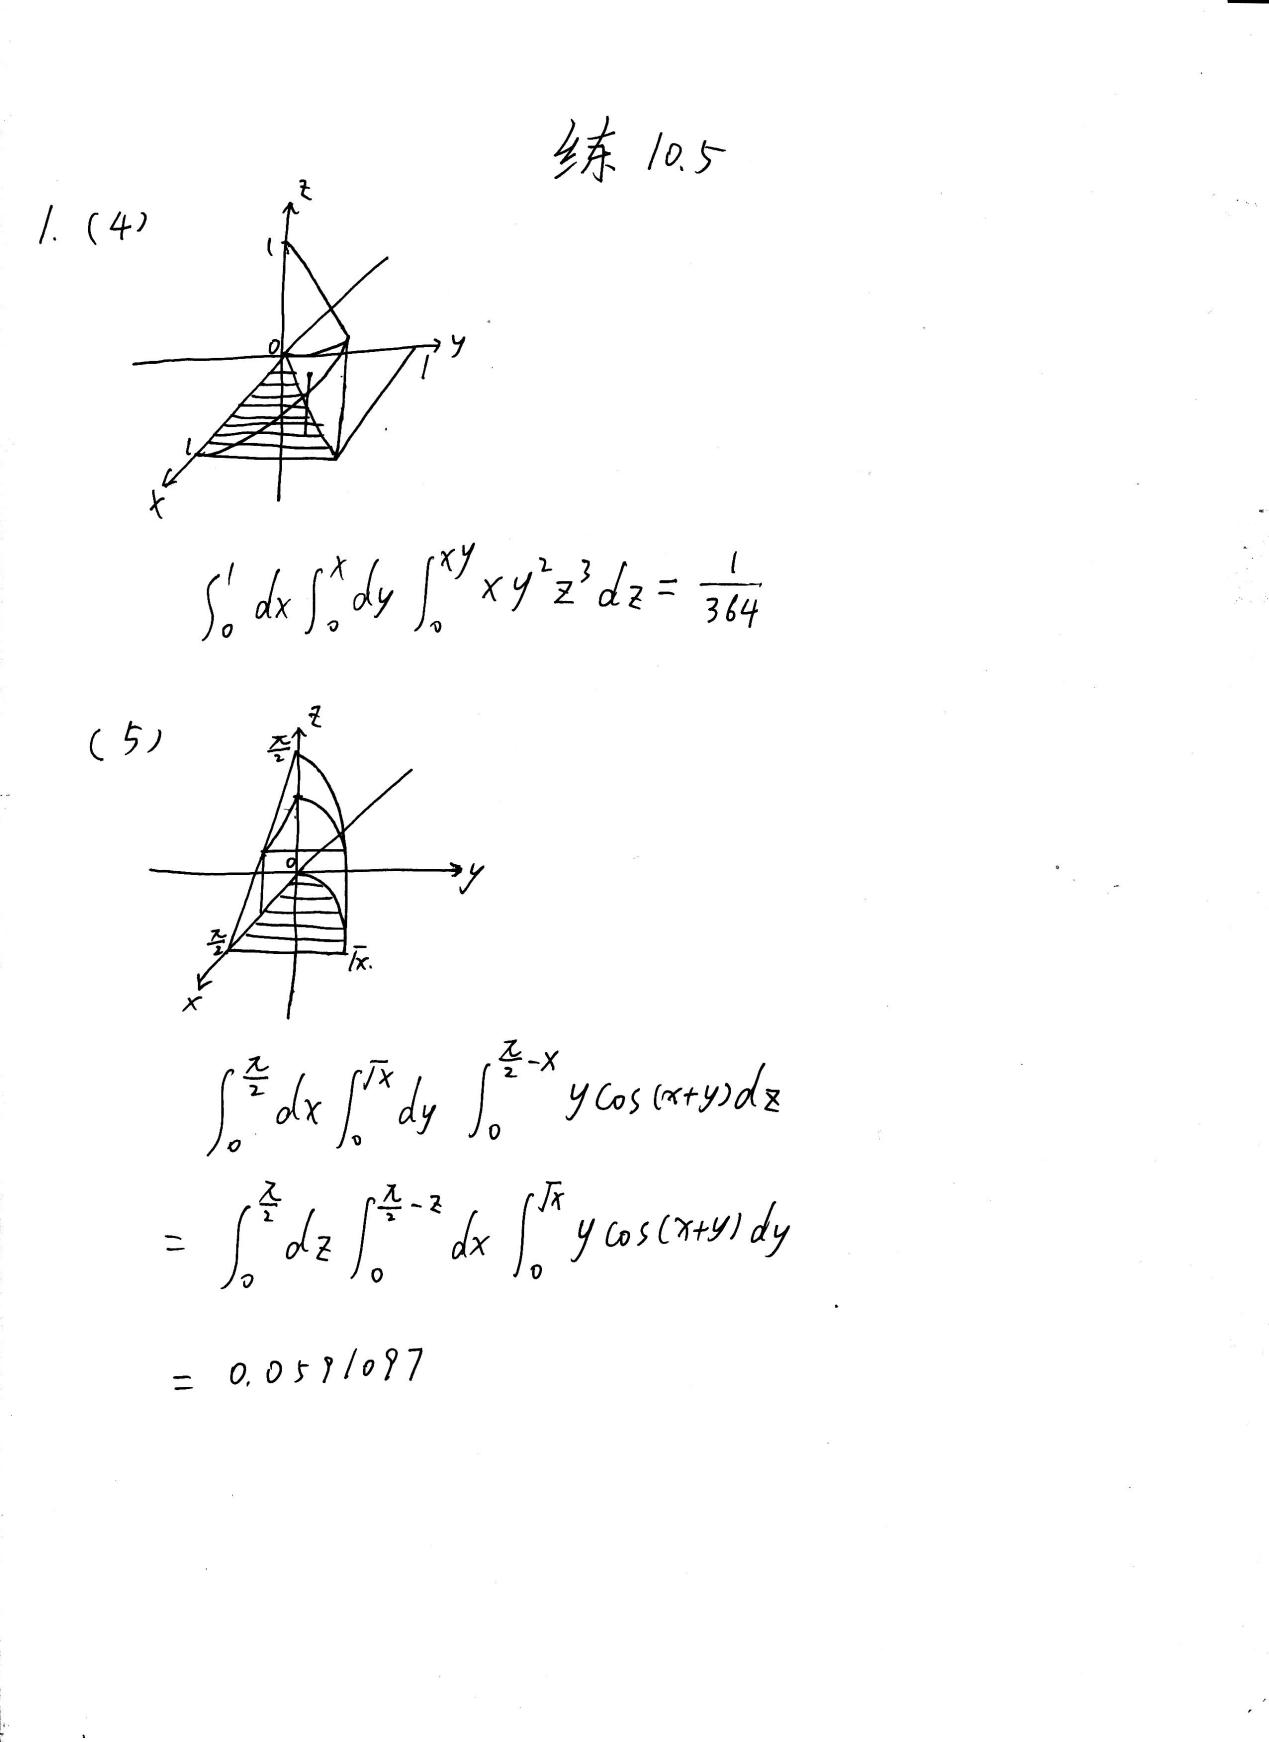 练 10.5
1. (4)
z
1
0
y
1
1
x
∫₀¹ dx ∫₀ˣ dy ∫₀^{xy} x y² z³ dz = 1/364
(5)
z
π/2
0
y
π/2
√x.
x
∫₀^{π/2} dx ∫₀^{√x} dy ∫₀^{π/2 - x} y cos(x+y) dz
= ∫₀^{π/2} dz ∫₀^{π/2 - z} dx ∫₀^{√x} y cos(x+y) dy
= 0.0591097